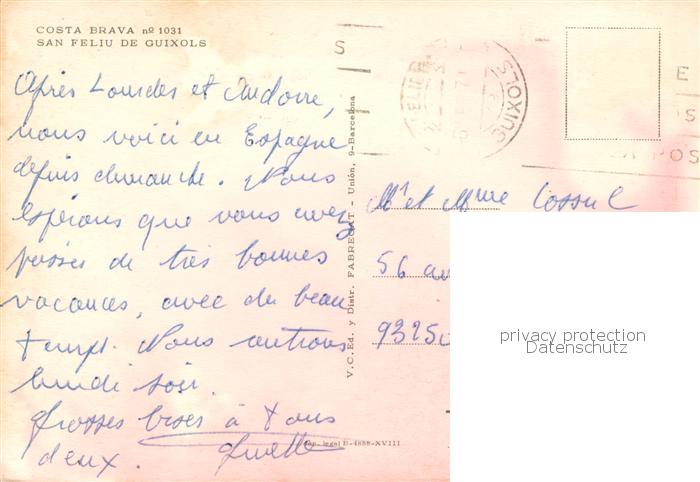 COSTA BRAVA nº 1031
SAN FELIU DE GUIXOLS
Après Lourdes et Andorre,
nous voici en Espagne
depuis dimanche. Nous
espérons que vous avez
passés de très bonnes
vacances, avec du beau
temps. Nous rentrons
lundi soir.
Grosses bises à tous
deux.
V.C. Ed. y Distr. FABREGAT - Unión, 9-Barcelona
Dep. legal B-4888-XVIII
GUIXOLS
Mr et Mme
56 av
privacy protection
Datenschutz